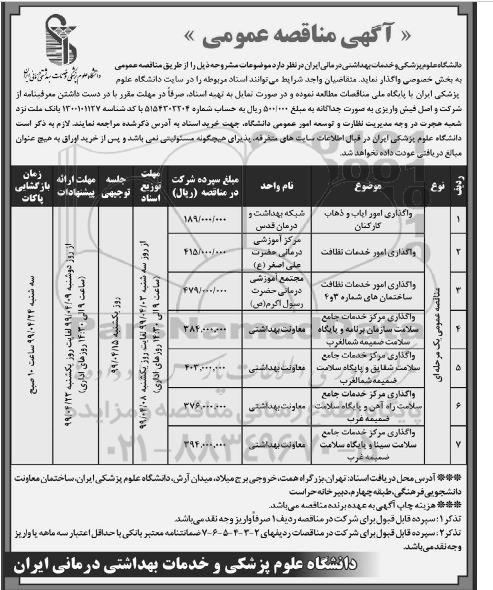 « آگهی مناقصه عمومی »
دانشگاه علوم پزشکی و خدمات بهداشتی درمانی ایران در نظر دارد موضوعات مشروحه ذیل را از طریق مناقصه عمومی
به بخش خصوصی واگذار نماید. متقاضیان واجد شرایط می‌توانند اسناد مربوطه را در سایت دانشگاه علوم
پزشکی ایران یا پایگاه ملی مناقصات مطالعه نموده و در صورت تمایل به تهیه اسناد، صرفاً در مهلت مقرر با در دست داشتن معرفینامه از
شرکت و اصل فیش واریزی به صورت جداگانه به مبلغ ۵۰۰/۰۰۰ ریال به حساب شماره ۵۱۵۴۳۰۲۲۰۴ با کد شناسه ۱۳۰۰۱۰۱۱۲۷ بانک ملت نزد
شعبه هجرت در وجه مدیریت نظارت و توسعه امور عمومی دانشگاه، جهت خرید اسناد به آدرس ذکرشده مراجعه نمایند. لازم به ذکر است
دانشگاه علوم پزشکی ایران در قبال اطلاعات سایت های متفرقه، پذیرای هیچگونه مسئولیتی نمی باشد و پس از خرید اوراق به هیچ عنوان
مبالغ دریافتی عودت داده نخواهد شد.
ردیف نوع موضوع نام واحد مبلغ سپرده شرکت در مناقصه (ریال) مهلت توزیع اسناد جلسه توجیهی مهلت ارائه پیشنهادات زمان بازگشایی پاکات
مناقصه عمومی یک مرحله ای
۱ واگذاری امور ایاب و ذهاب کارکنان شبکه بهداشت و درمان قدس ۱۸۹/۰۰۰/۰۰۰
۲ واگذاری امور خدمات نظافت مرکز آموزشی درمانی حضرت علی اصغر (ع) ۴۱۵/۰۰۰/۰۰۰
۳ واگذاری امور خدمات نظافت ساختمان های شماره ۳و۴ مجتمع آموزشی درمانی حضرت رسول اکرم(ص) ۴۷۹/۰۰۰/۰۰۰
۴ واگذاری مرکز خدمات جامع سلامت سازمان برنامه و پایگاه سلامت ضمیمه شمالغرب معاونت بهداشتی ۳۸۴.۰۰۰.۰۰۰
۵ واگذاری مرکز خدمات جامع سلامت شقایق و پایگاه سلامت ضمیمه شمالغرب معاونت بهداشتی ۴۰۳.۰۰۰.۰۰۰
۶ واگذاری مرکز خدمات جامع سلامت راه آهن و پایگاه سلامت ضمیمه غرب معاونت بهداشتی ۳۷۶.۰۰۰.۰۰۰
۷ واگذاری مرکز خدمات جامع سلامت سینا و پایگاه سلامت ضمیمه غرب معاونت بهداشتی ۳۹۴.۰۰۰.۰۰۰
از روز سه شنبه ۹۹/۰۴/۰۳ لغایت روز یکشنبه ۹۹/۰۴/۰۸ (ساعت ۹ الی ۱۴:۳۰ روزهای اداری)
روز یکشنبه ۹۹/۰۴/۱۵
از روز دوشنبه ۹۹/۰۴/۰۹ لغایت روز یکشنبه ۹۹/۰۴/۲۲ (ساعت ۹ الی ۱۴:۳۰ روزهای اداری)
سه شنبه ۹۹/۰۴/۲۴ ساعت ۱۰ صبح
❋❋❋ آدرس محل دریافت اسناد: تهران، بزرگراه همت، خروجی برج میلاد، میدان آرش، دانشگاه علوم پزشکی ایران، ساختمان معاونت
دانشجویی فرهنگی، طبقه چهارم، دبیرخانه حراست
❋❋❋ هزینه چاپ آگهی به عهده برنده مناقصه می‌باشد.
تذکر ۱: سپرده قابل قبول برای شرکت در مناقصه ردیف ۱ صرفاً واریز وجه نقد می‌باشد.
تذکر ۲: سپرده قابل قبول برای شرکت در مناقصات ردیفهای ۲-۳-۴-۵-۶-۷ ضمانتنامه معتبر بانکی با حداقل اعتبار سه ماهه یا واریز
وجه نقد می‌باشد.
دانشگاه علوم پزشکی و خدمات بهداشتی درمانی ایران